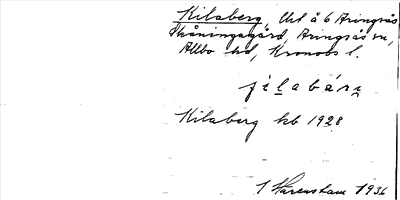 Kilaberg, Utt å 6 Aringsås
Skåningsgård, Aringsås sn,
Allbo hd, Kronobs l.
ji̱labárɳ
Kilaberg kb 1928
1936